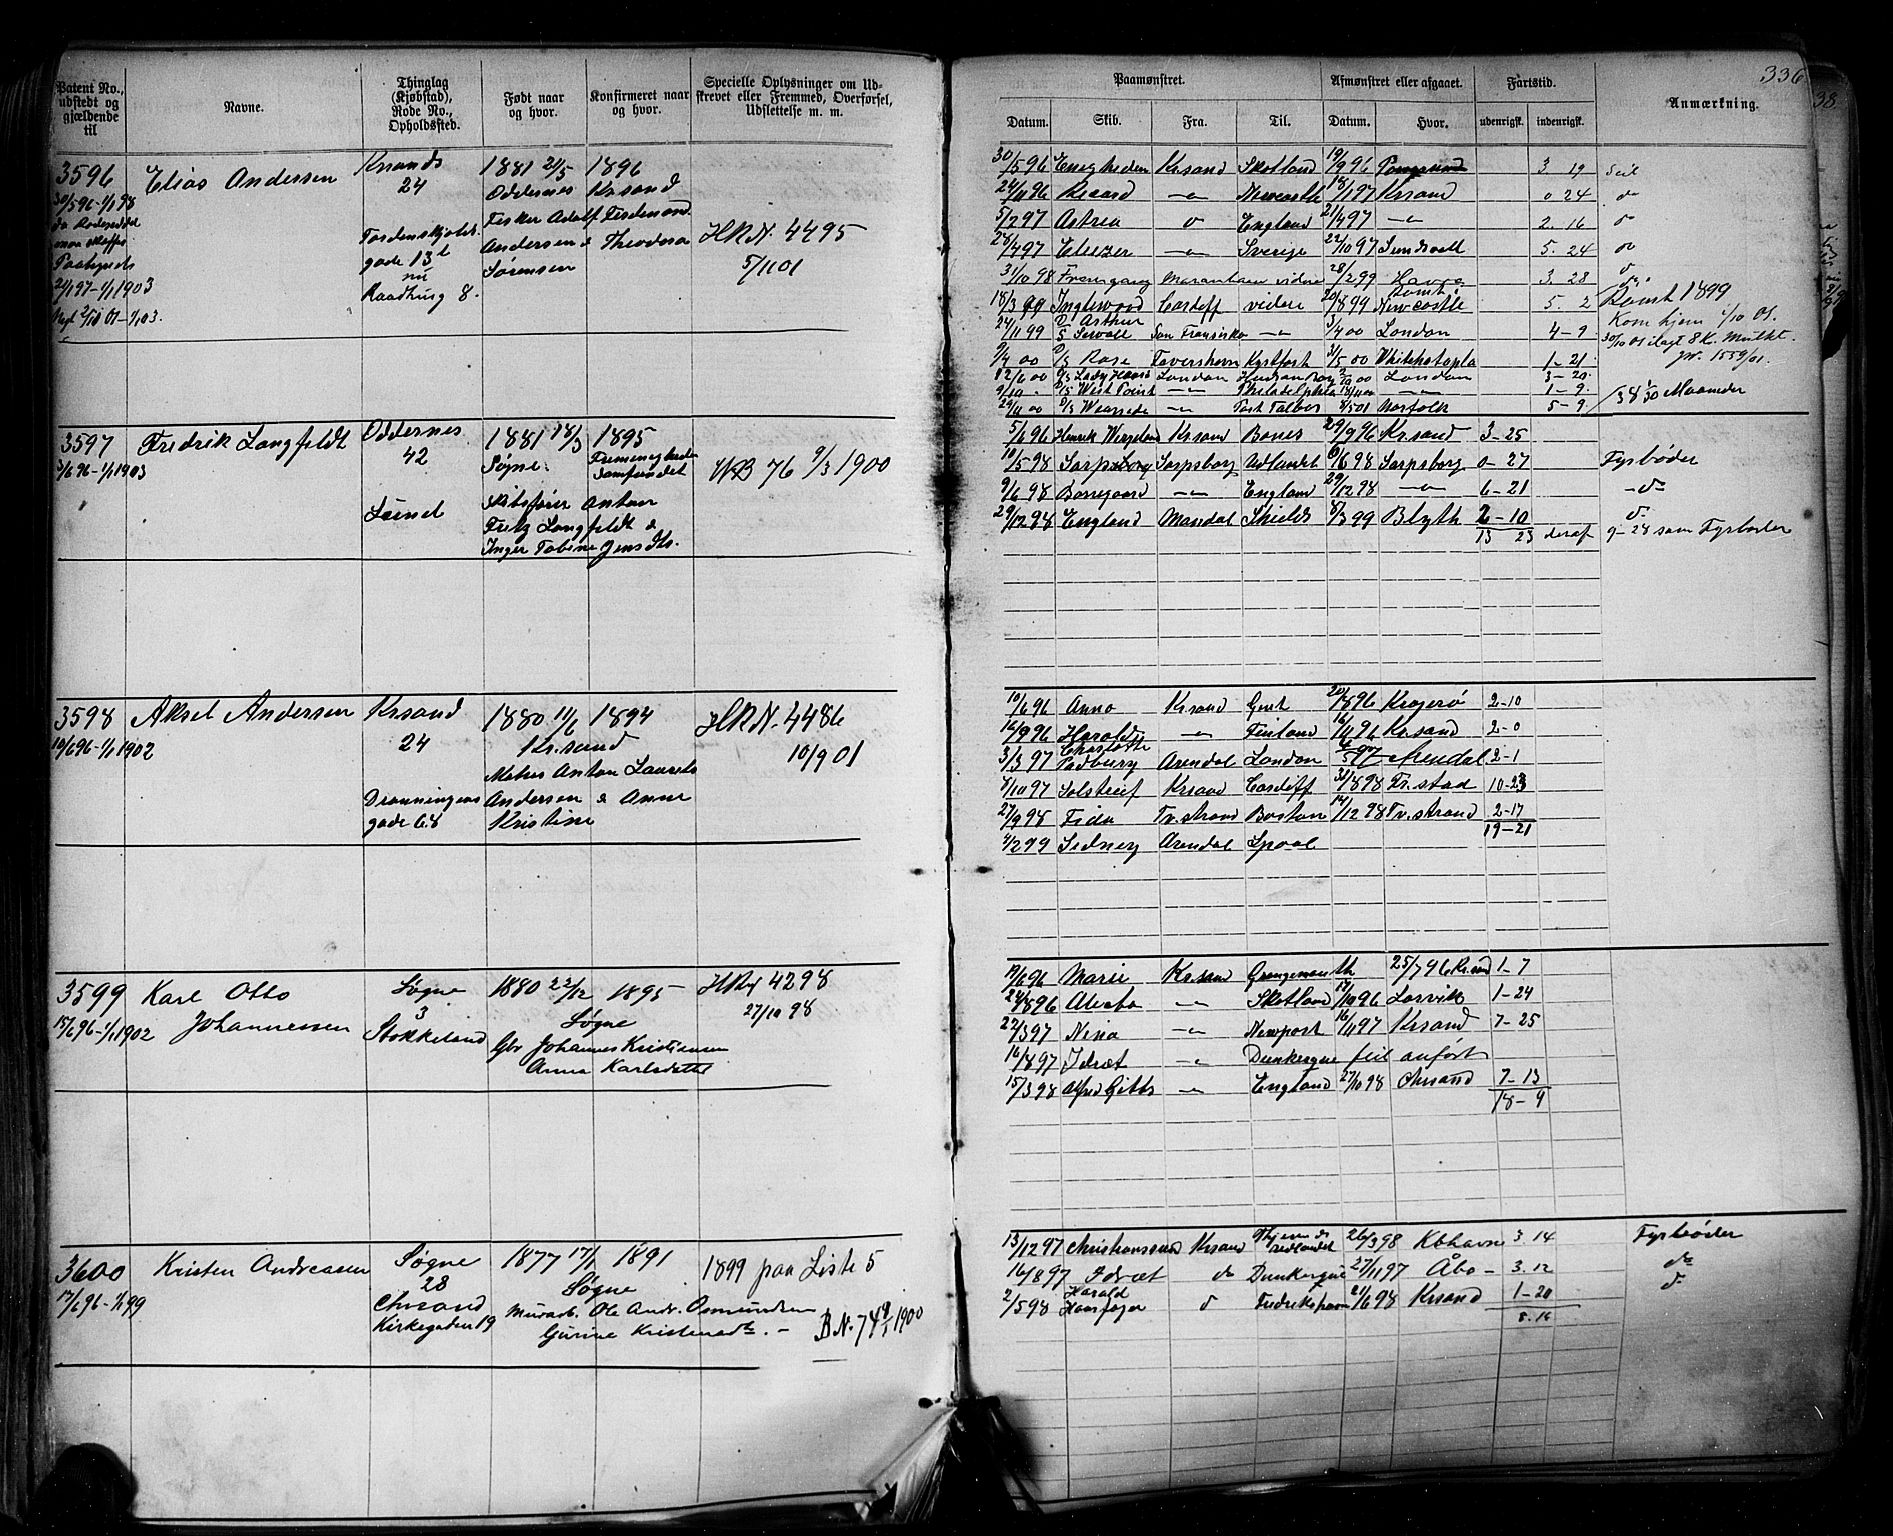 336
38
Patent No., udstedt og gjældende til
Navne.
Thinglag (Kjøbstad), Rode No., Opholdssted.
Født naar og hvor.
Konfirmeret naar og hvor.
Specielle Oplysninger om Udskrevet eller Fremmed, Overførsel, Udslettelse m. m.
Paamønstret.
Afmønstret eller afgaaet.
Fartstid.
Anmærkning.
Datum. Skib. Fra. Til. Datum. Hvor. udenrigsk. indenrigsk.
3596 Elias Andersen Krsands 1881 21/5 1896
30/5 96-1/1 98 24 Oddernes Krsand
Fisker Adolf Ferdinand
Tordenskjolds Andersen & Theodora HRN. 4495
gade 13 Sørensen 5/11 01
nu
21/1 97-1/1 1903 Raadhusg 8.
30/5 96 Enigheden Krsand Skotland 19/9 96 3 19 Seil
24/11 96 — Newcastle 18/1 97 Krsand 0 24 do
5/2 97 Astrea England 21/4 97 — 2. 16
28/4 97 Eliezer — Sverige 22/10 97 Sundsvall 5. 24
31/10 98 Fremgang Maranham videre 28/2 99 3. 28
18/3 99 Inglewood Cardiff videre 20/8 99 Newcastle 5. 2 Rømt 1899
24/11 99 Arthur Sewall San Fransisko — 3/4 00 London 4-9 Kom hjem 1/10 01.
9/4 00 Rose Kystfart 3/5 00 1-21 30/10 01 ilagt 8 K. Mulkt
12/6 00 London London 3-20 nr. 1559/01.
West Point — Philadelphia — 1-9
29/11 00 — Port Talbot 8/5 01 Norfolk 5-9 38 1/30 Maaneder
3597 Fredrik Langfeldt Oddernes 1881 18/3 1895
5/6 96-1/1 1903 42 Søgne. Frimenighedssamfundet HB 76 9/3 1900
Lund Skibsfører Anton
Fritz Langfeldt &
Inger Tobine Jensdtr.
5/6 96 Henrik Wergeland Krsand Bones 29/9 96 Kr.sand 3-25
10/5 98 Sarpsborg Sarpsborg Udlandet 6/6 98 Sarpsborg 0-27 Fyrbøder
9/6 98 Borregaard — England 29/12 98 — 6-21 -do-
29/12 98 England Mandal Shields 8/3 99 Blyth 2-10
13 23 deraf 9-28 som Fyrbøder
3598 Aksel Andersen Krsand 1880 11/6 1894 HRN. 4486
10/6 96-1/1 1902 24 Kr.sand 10/9 01
Anton Laurits
Dronningens Andersen & Anne
gade 68 Kristine
10/6 96 Anna Krsand Gent 20/8 96 Kragerø 2-10
16/9 96 — Finland 16/11 96 Kr.sand 2-0
3/3 97 Charlotte Padbury Arendal London Arendal 2-1
8/10 97 Solstreif Krsand Cardiff 31/8 98 Fr.stad 10-23
27/9 98 Fido Tv.strand Boston 14/12 98 Tv.strand 2-17
19-21
4/2 99 Sidney Arendal Lpool
3599 Karl Otto Johannessen Søgne 1880 22/12 1895 4298
15/6 96-1/1 1902 3 Søgne 27/10 98
Stokkeland Gbr Johannes Kristiansen
Anna Karlsdatter
19/6 96 Marie Kr.sand Grangemouth 25/7 96 Krsand 1-7
24/8 96 — Skotland 17/10 96 Larvik 1-24
22/3 97 Nina — Newport 16/11 97 Krsand 7-25
16/8 97 Idræt — Dunkerque feil anført
15/3 98 Alfred Gibbs — England 27/10 98 Chrsand 7-13
18-9
3600 Kristen Andreassen Søgne 1877 17/1 1891 1899 paa Liste 5
17/6 96-1/1 99 28 Søgne
Chrsand Murarb. Ole Andr. Osmundsen B N. 74 9/3 1900
Kirkegaden 19 Gurine Kristensdtr.
13/12 97 Christianssund Krsand udlandet 26/3 98 Kbhavn 3. 14 Fyrbøder
16/8 97 Idræt do Dunkerque 27/11 97 Åbo 3. 12 do
2/5 98 Harald Haarfager Fredrikshavn 21/6 98 Krsand 1-20
8. 16